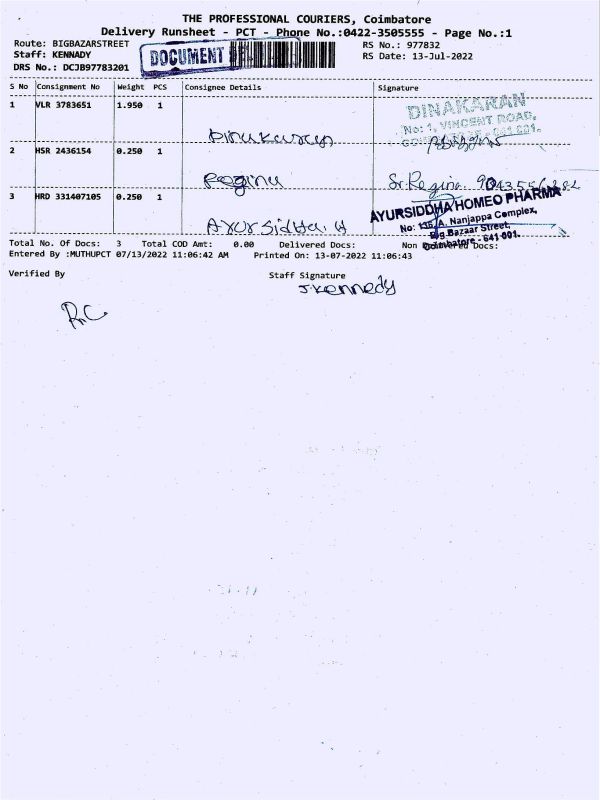 THE PROFESSIONAL COURIERS, Coimbatore
Delivery Runsheet - PCT - Phone No.:0422-3505555 - Page No.:1
Route: BIGBAZARSTREET
RS No.: 977832
Staff: KENNADY
DOCUMENT
RS Date: 13-Jul-2022
DRS No.: DCJB97783201
S No Consignment No Weight PCS Consignee Details Signature
1 VLR 3783651 1.950 1
DINAKARAN
No: 1, VINCENT ROAD,
Dinakaran
2 HSR 2436154 0.250 1
Regina Sr. Regina
3 HRD 331407105 0.250 1
AYURSIDDHA HOMEO PHARMA
Nanjappa Complex,
Big Bazaar Street,
Coimbatore - 641 001.
Total No. Of Docs: 3 Total COD Amt: 0.00 Delivered Docs: Non Delivered Docs:
Entered By :MUTHUPCT 07/13/2022 11:06:42 AM Printed On: 13-07-2022 11:06:43
Verified By Staff Signature
J.Kennedy